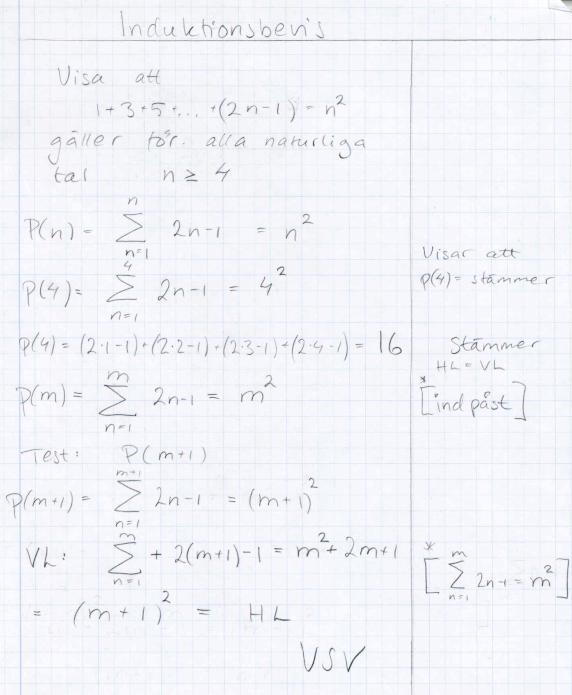 Induktionsbevis
Visa att
1+3+5+...+(2n-1) = n²
gäller för. alla naturliga
tal n ≥ 4
P(n) = ∑_{n=1}^{n} 2n-1 = n²
P(4) = ∑_{n=1}^{4} 2n-1 = 4²
Visar att
p(4) = stämmer
P(4) = (2·1-1)+(2·2-1)+(2·3-1)+(2·4-1) = 16
Stämmer
HL = VL
P(m) = ∑_{n=1}^{m} 2n-1 = m²
* [ind påst]
Test: P(m+1)
P(m+1) = ∑_{n=1}^{m+1} 2n-1 = (m+1)²
VL: ∑_{n=1}^{m} + 2(m+1)-1 = m²+2m+1
* [∑_{n=1}^{m} 2n-1 = m²]
= (m+1)² = HL
VSV